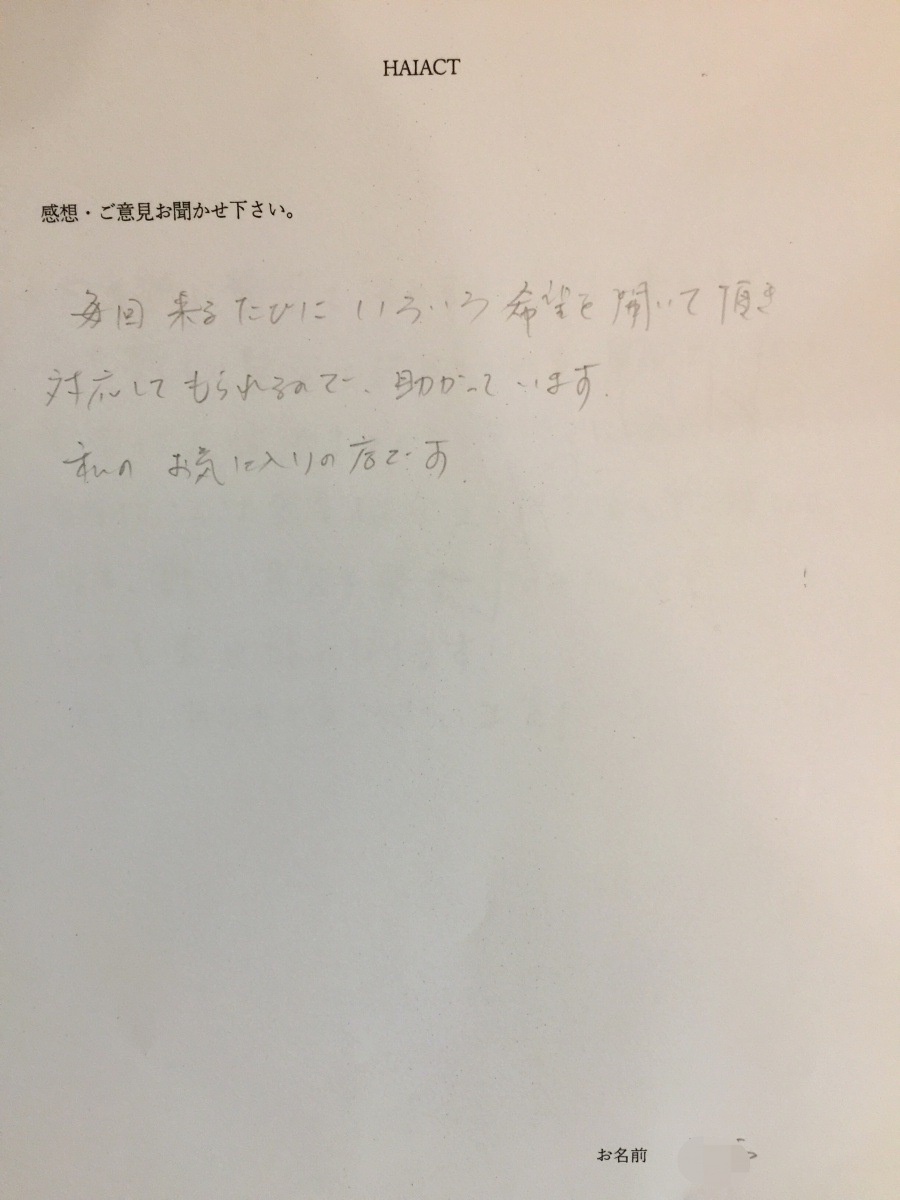 HAIACT
感想・ご意見お聞かせ下さい。
毎回来るたびにいろいろ希望を聞いて頂き
対応してもらえるので、助かっています。
私のお気に入りの店です
お名前